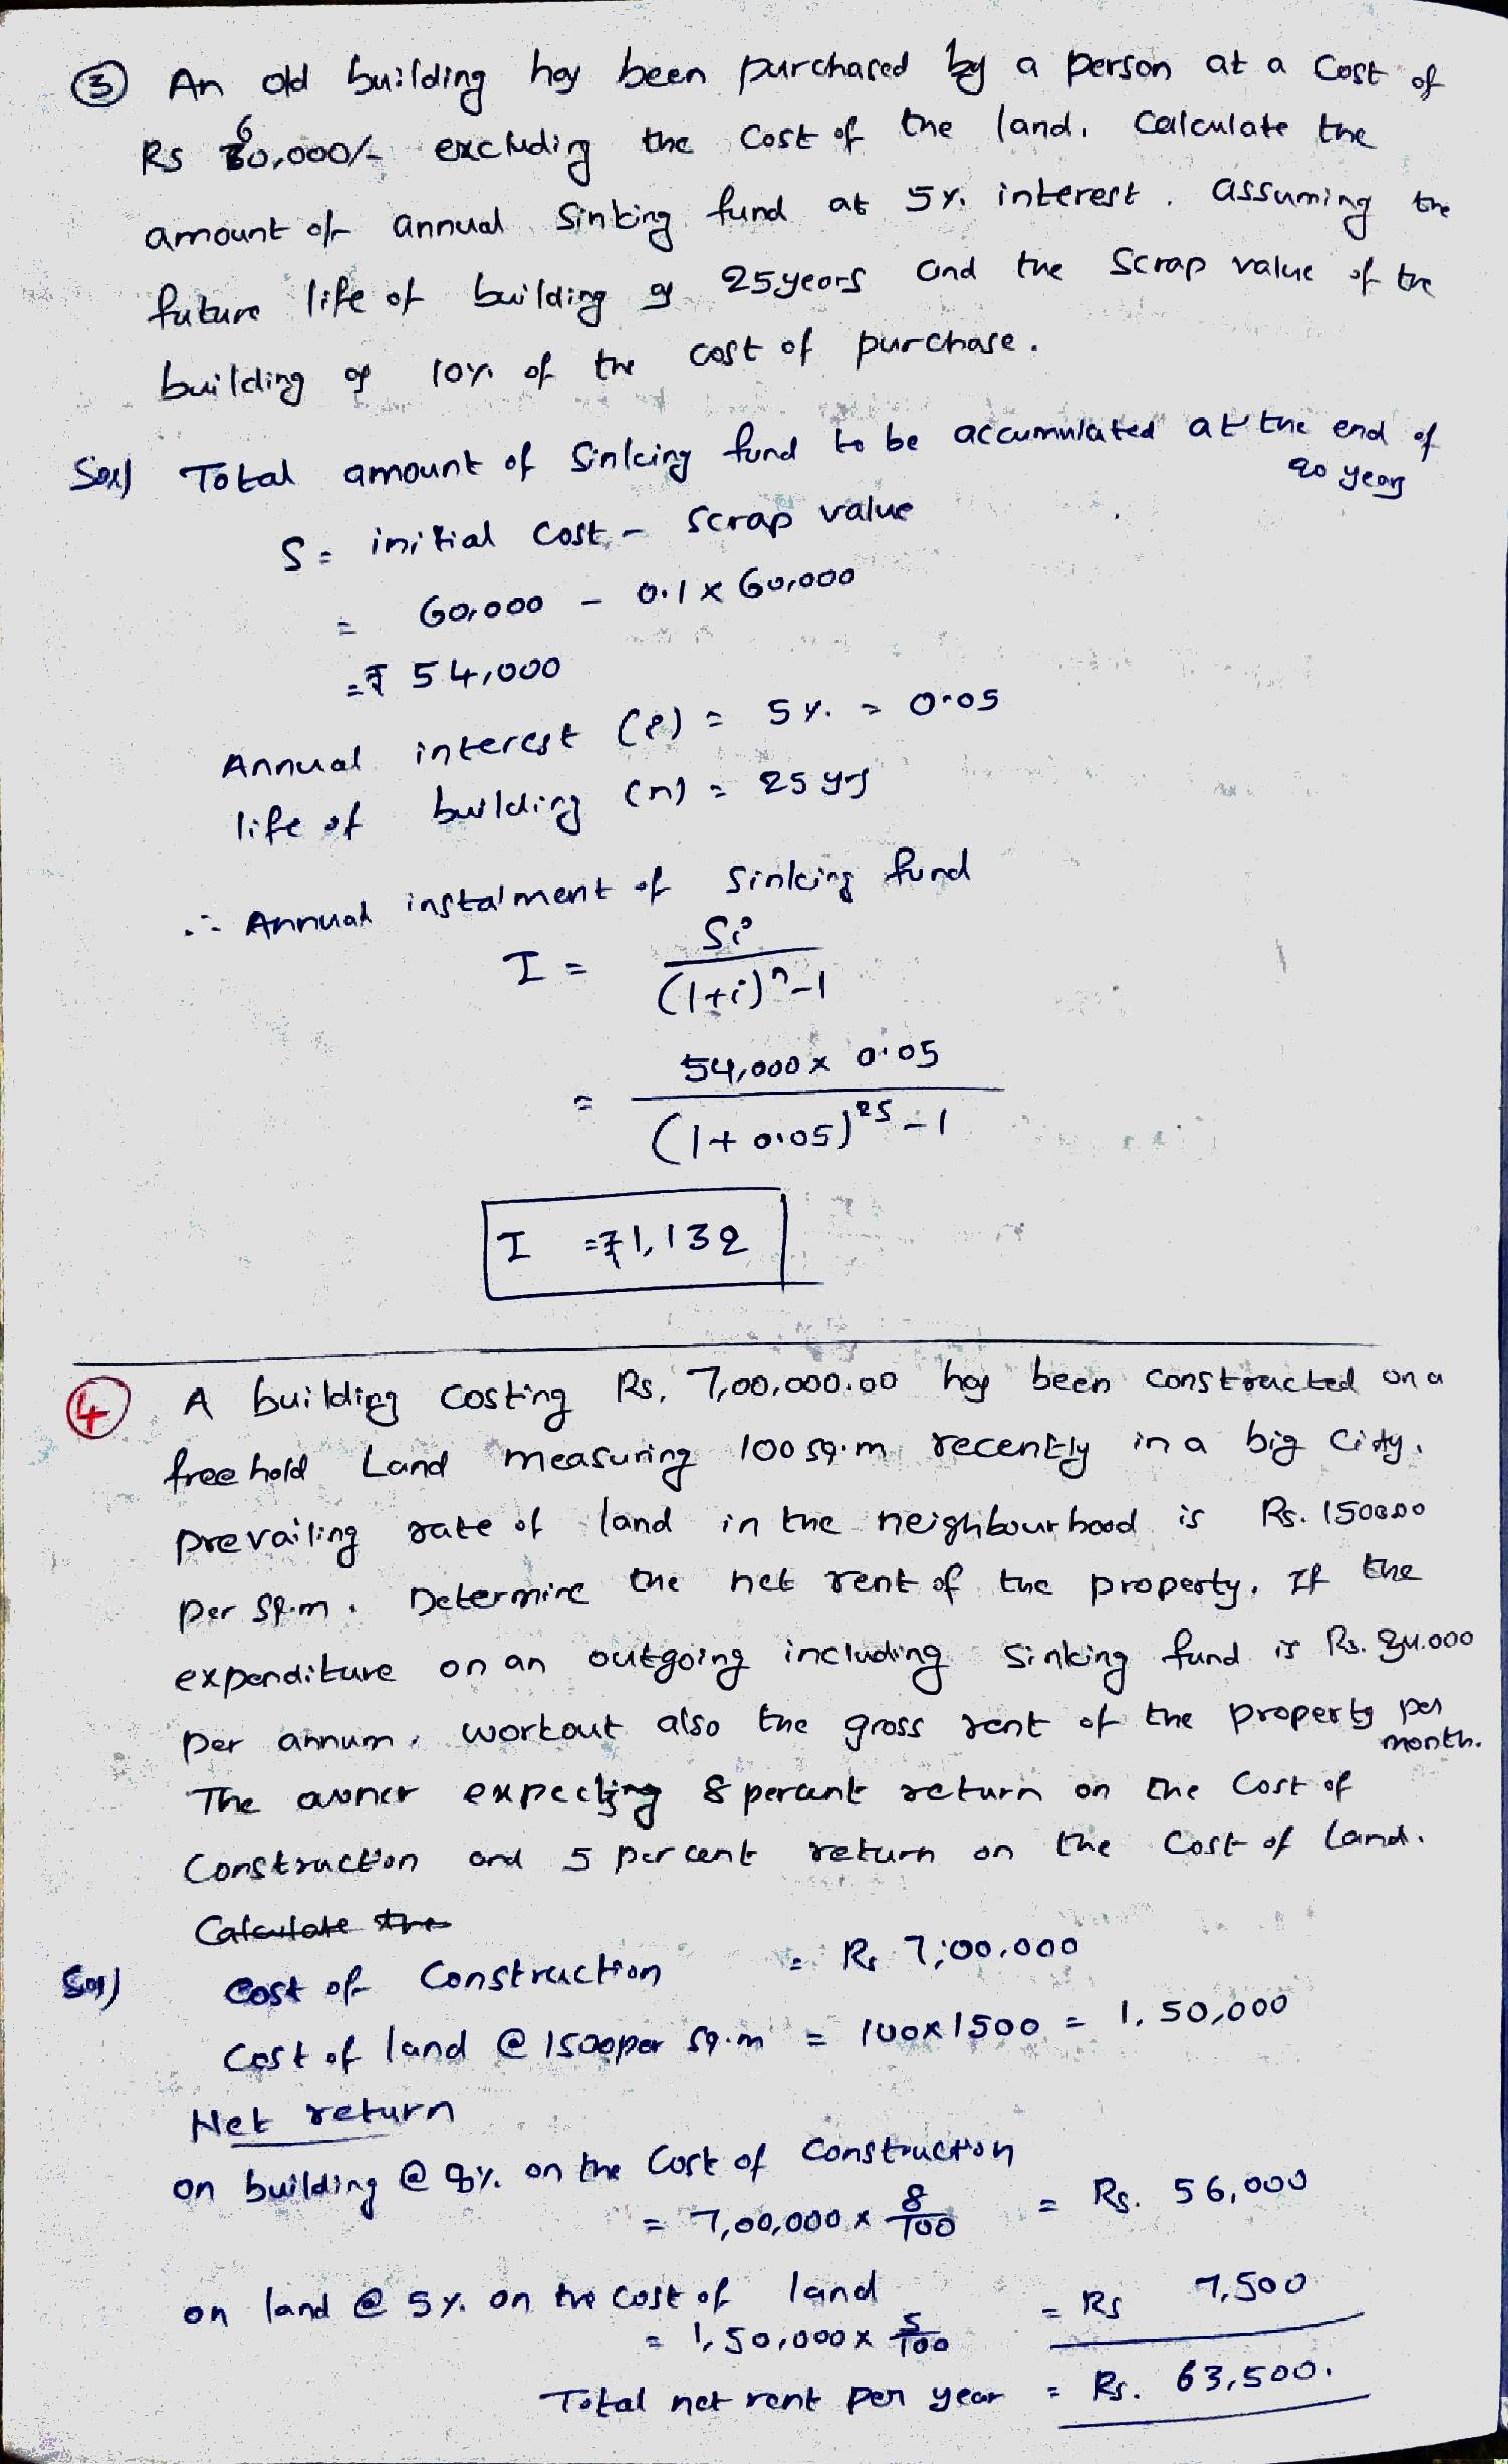 ③ An old building has been purchased by a person at a cost of
Rs 60,000/- excluding the cost of the land. Calculate the
amount of annual sinking fund at 5% interest. assuming the
future life of building as 25years and the scrap value of the
building as 10% of the cost of purchase.
Sol) Total amount of sinking fund to be accumulated at the end of
20 years
S = initial cost - scrap value
= 60,000 - 0.1 x 60,000
= ₹ 54,000
Annual interest (i) = 5% = 0.05
life of building (n) = 25 yrs
∴ Annual instalment of sinking fund
I = Si / (1+i)ⁿ-1
= 54,000 x 0.05 / (1+0.05)²⁵-1
I = ₹1,132
④ A building costing Rs. 7,00,000.00 has been constructed on a
free hold Land measuring 100 sq.m recently in a big City.
prevailing rate of land in the neighbourhood is Rs. 1500.00
per sq.m. Determine the net rent of the property. If the
expenditure on an outgoing including sinking fund is Rs. 24.000
per annum. workout also the gross rent of the property per
month.
The owner expecting 8 percent return on the cost of
Construction and 5 percent return on the cost of land.
Calculate the
Sol) Cost of Construction = Rs 7,00,000
Cost of land @ 1500per sq.m = 100x1500 = 1,50,000
Net return
on building @ 8% on the cost of construction
= 7,00,000 x 8/100 = Rs. 56,000
on land @ 5% on the cost of land
= 1,50,000 x 5/100 = Rs 7,500
Total net rent per year = Rs. 63,500.